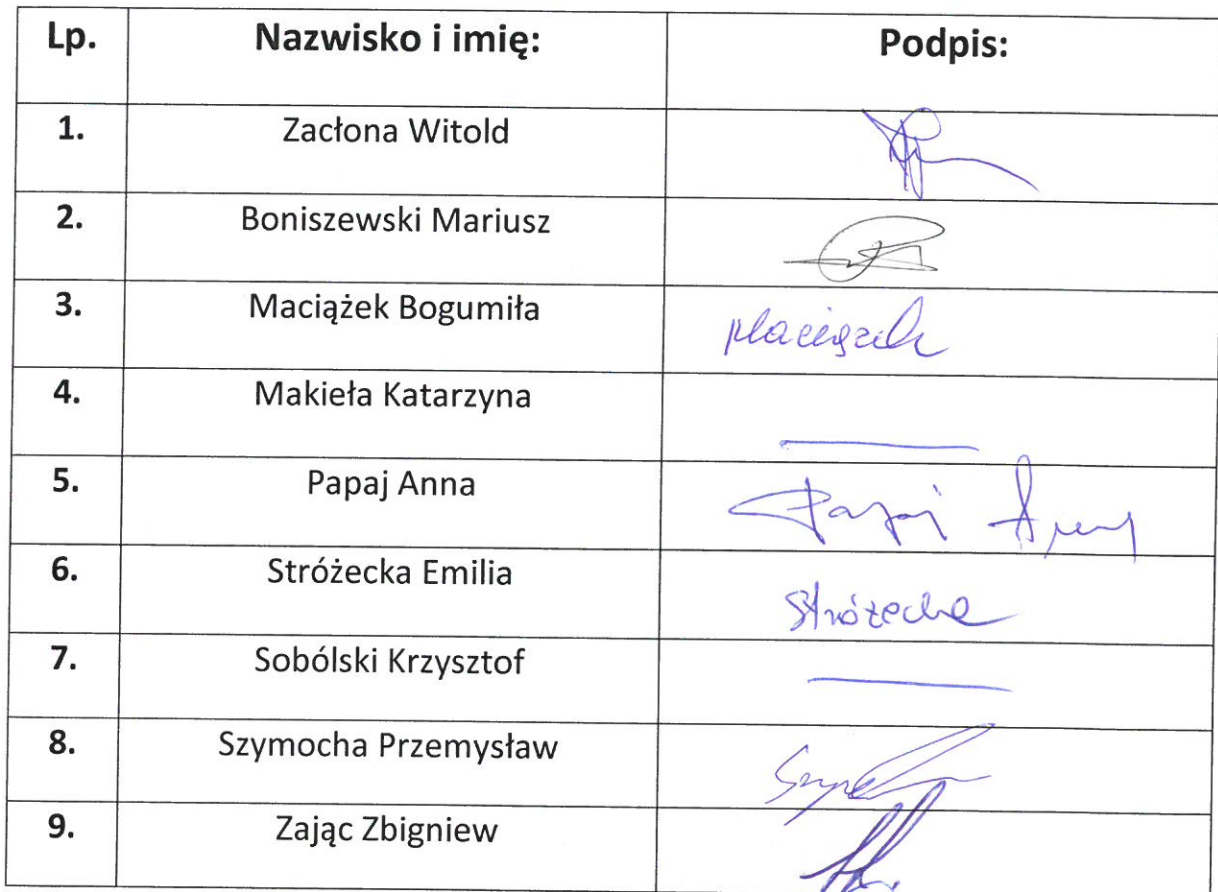 Lp. Nazwisko i imię: Podpis:
1. Zacłona Witold
2. Boniszewski Mariusz
3. Maciążek Bogumiła Maciążek
4. Makieła Katarzyna
5. Papaj Anna Papaj Anna
6. Stróżecka Emilia Stróżecka
7. Sobólski Krzysztof
8. Szymocha Przemysław
9. Zając Zbigniew